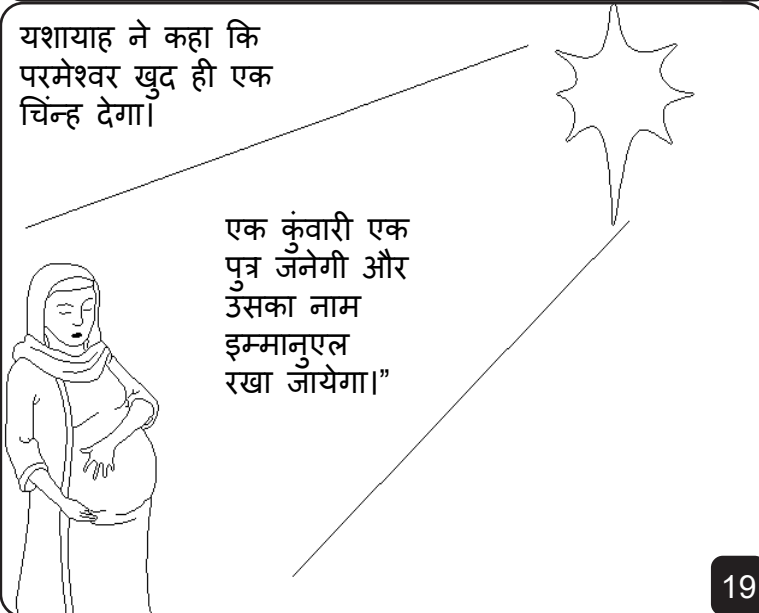 यशायाह ने कहा कि
परमेश्वर खुद ही एक
चिंन्ह देगा।
एक कुंवारी एक
पुत्र जनेगी और
उसका नाम
इम्मानुएल
रखा जायेगा।”
19